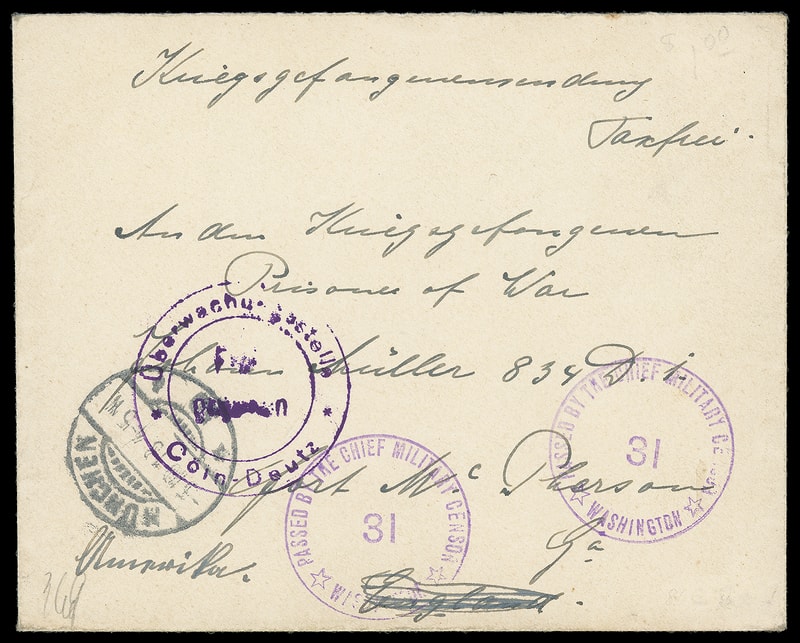 Kriegsgefangenensendung
Taxfrei.
An den Kriegsgefangenen
Prisoner of War
Johann Müller 834 D. 1.
Fort Mc Pherson
Ga
Amerika.
England.
Überwachungsstelle
Cöln-Deutz
MÜNCHEN
PASSED BY THE CHIEF MILITARY CENSOR
31
WASHINGTON
PASSED BY THE CHIEF MILITARY CENSOR
31
WASHINGTON